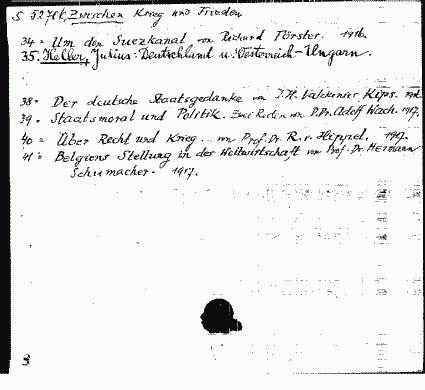 S 5276k, Zwischen Krieg und Frieden
34 = Um den Suezkanal von Richard Förster. 1916.
35. Heller, Julius: Deutschland u. Oesterreich-Ungarn.
38 = Der deutsche Staatsgedanke von J. H. Valckenier Kips.
39 = Staatsmoral und Politik. Zwei Reden von D. Dr. Adolf Wach. 1917.
40 = Über Recht und Krieg von Prof. Dr. R. v. Hippel. 1917.
41 = Belgiens Stellung in der Weltwirtschaft von Prof. Dr. Hermann
Schumacher. 1917.